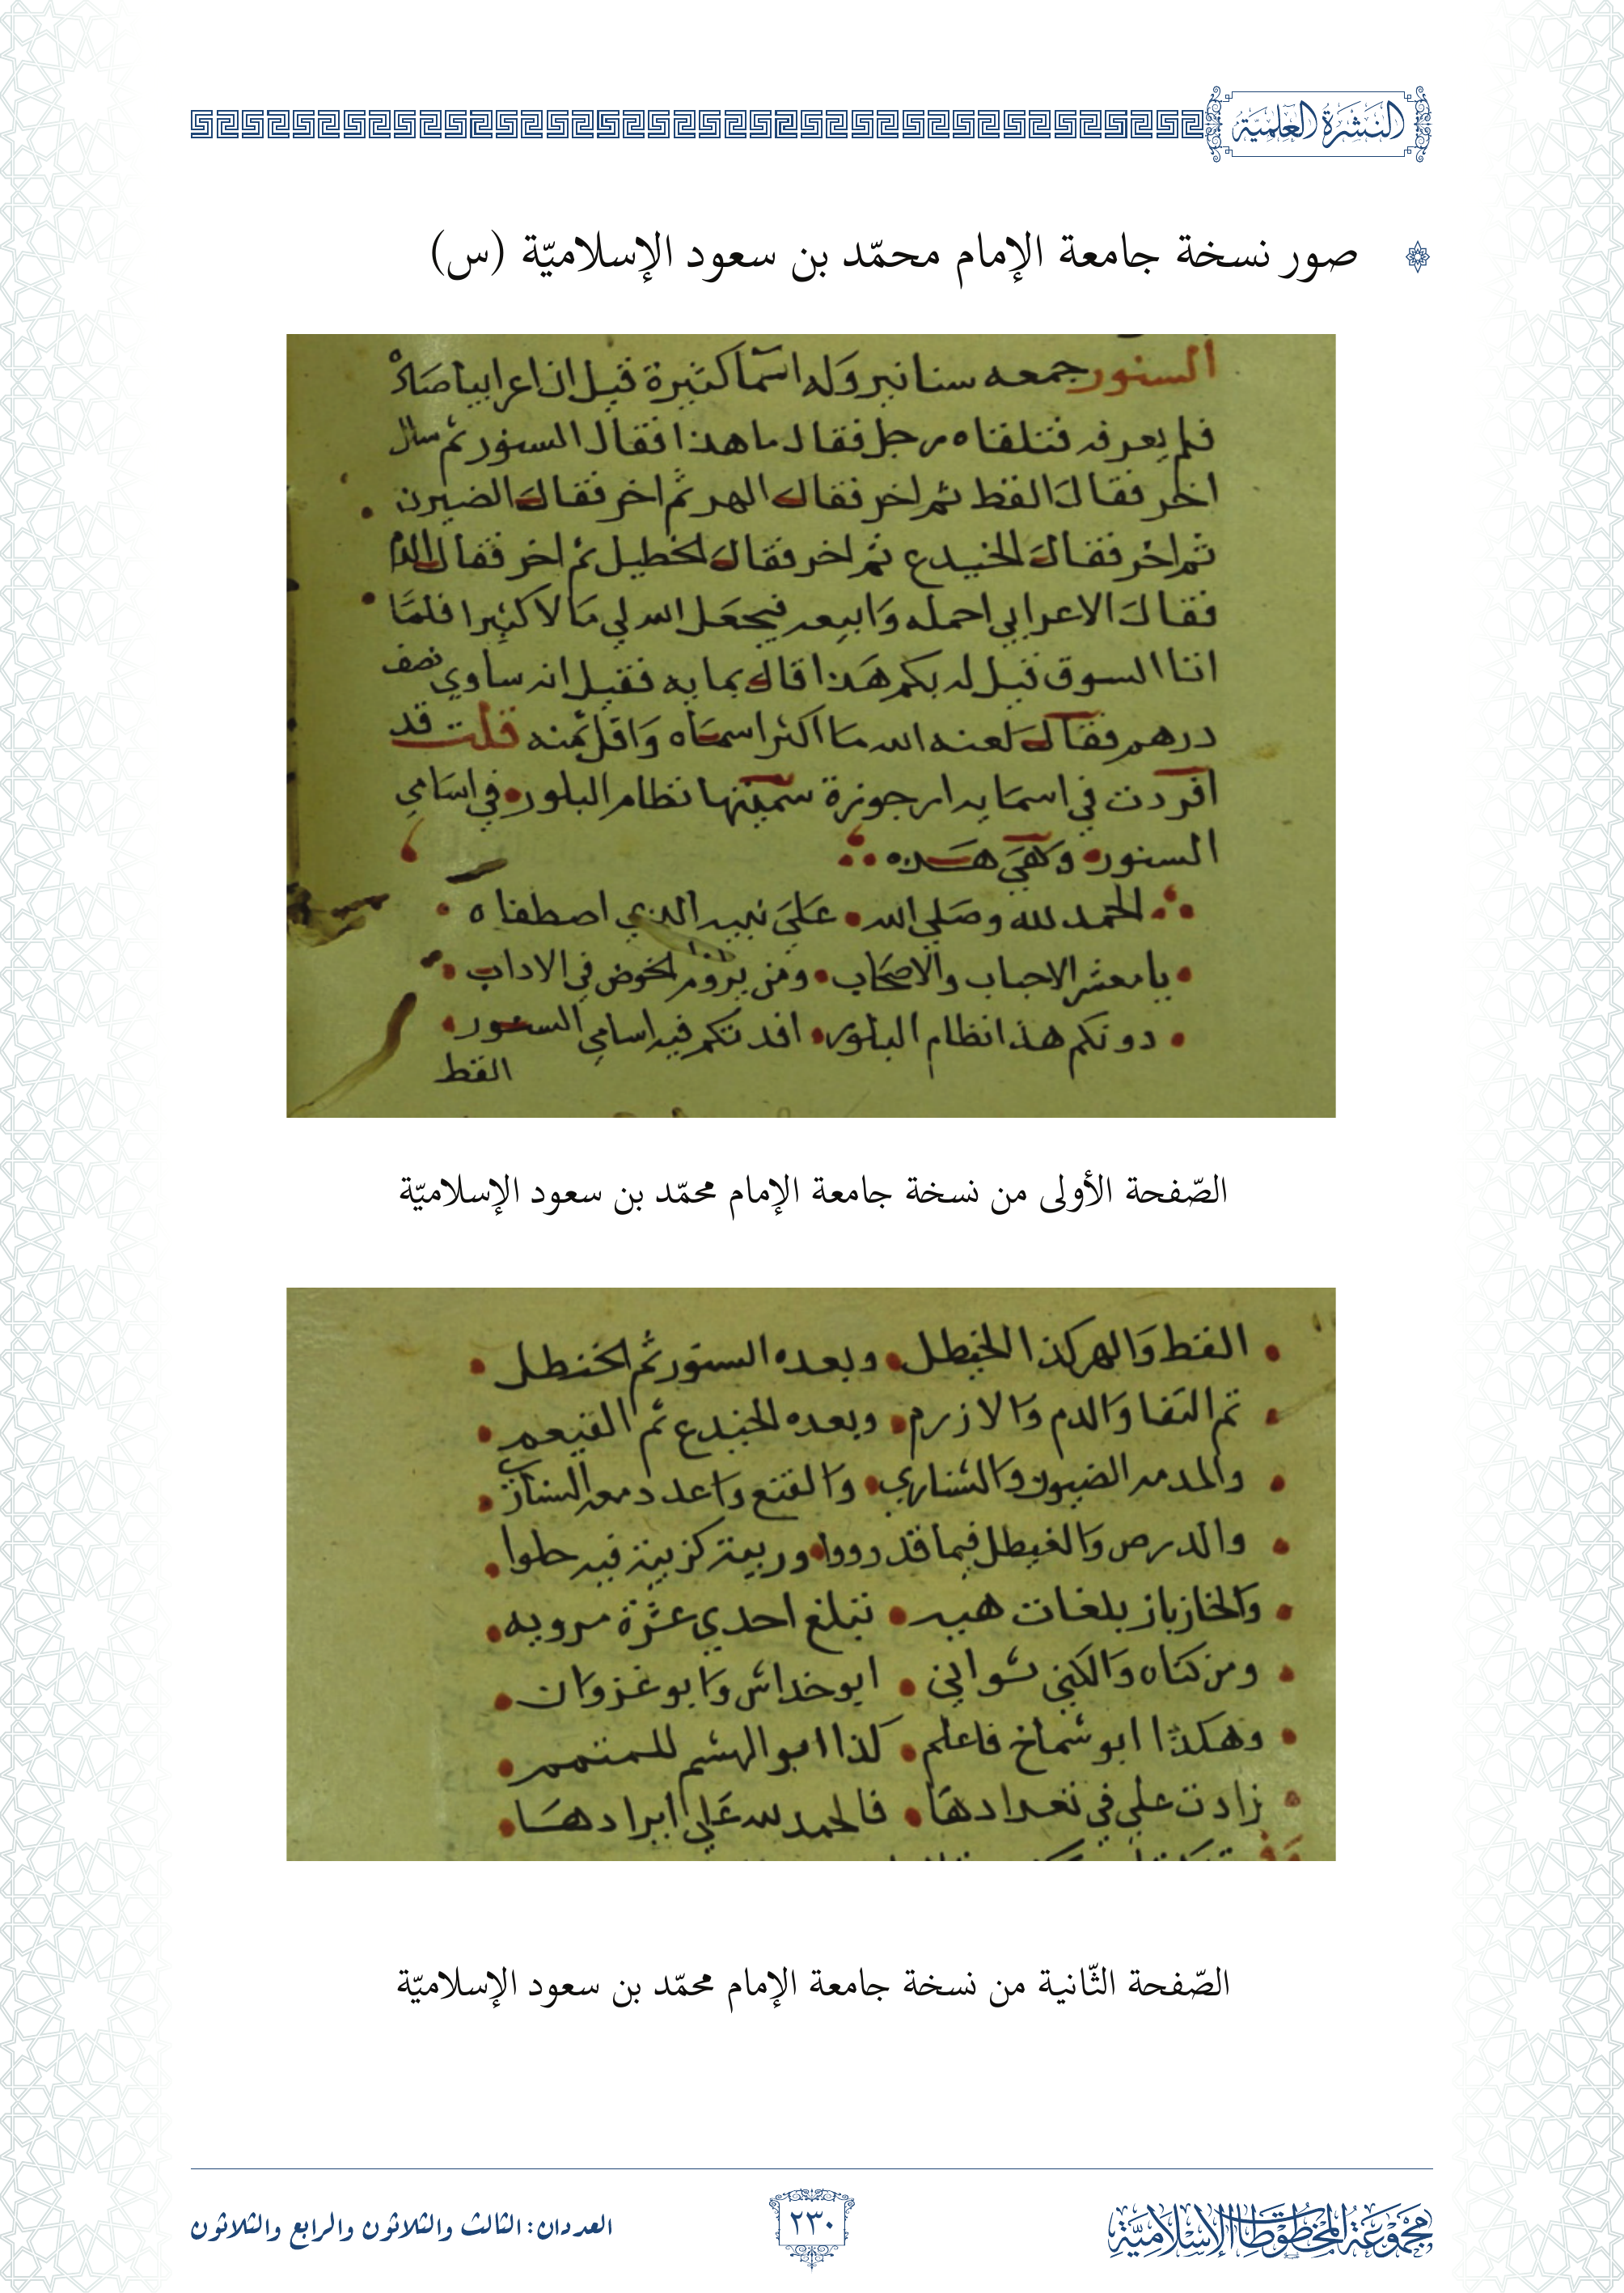 النشرة العلمية
صور نسخة جامعة الإمام محمّد بن سعود الإسلاميّة (س)
السنور جمعه سنانير وله اسما كثيرة قيل ان اعرابيا صاد
فلم يعرفه فتلقاه رجل فقال ما هذا فقال السنور ثم سال
اخر فقال القط ثم اخر فقال الهر ثم اخر فقال الضيرن
ثم اخر فقال الخيدع ثم اخر فقال الخطيل ثم اخر فقال الدم
فقال الاعرابي احمله وابيعه فيجعل الله لي مالا كثيرا فلما
اتا السوق قيل له بكم هذا قال بمايه فقيل انه ساوي نصف
درهم فقال لعنه الله ما اكثر اسماه واقل ثمنه قلت قد
افردت في اسمايه ارجوزة سميتها نظام البلور في اسامي
السنور وهي هذه
الحمد لله وصلي الله على نبيه الذي اصطفاه
يا معشر الاحباب والاصحاب ومن يروم الخوض في الاداب
دونكم هذا نظام البلور افدتكم فيه اسامي السنور
القط
الصّفحة الأولى من نسخة جامعة الإمام محمّد بن سعود الإسلاميّة
القط والهر كذا الخيطل وبعده السنور ثم الخنطل
ثم التفا والدم والازرم وبعده الخيدع ثم القيعم
والمدمه الضيون والشناري والقتع واعدد معه السنار
والدرص والغيطل فيما قد رووا وريمة كزبية فيه حلوا
والخازباز بلغات هيه تبلغ احدي عشرة مرويه
ومن كناه والكني ثواني ابو خداش وابو غزوان
وهكذا ابو شماخ فاعلم كذا ابو الهشم للمتمم
زادت علي في تعدادها فالحمد لله علي ايرادها
الصّفحة الثّانية من نسخة جامعة الإمام محمّد بن سعود الإسلاميّة
مجموعة المخطوطات الإسلامية
٢٣٠
العددان: الثالث والثلاثون والرابع والثلاثون